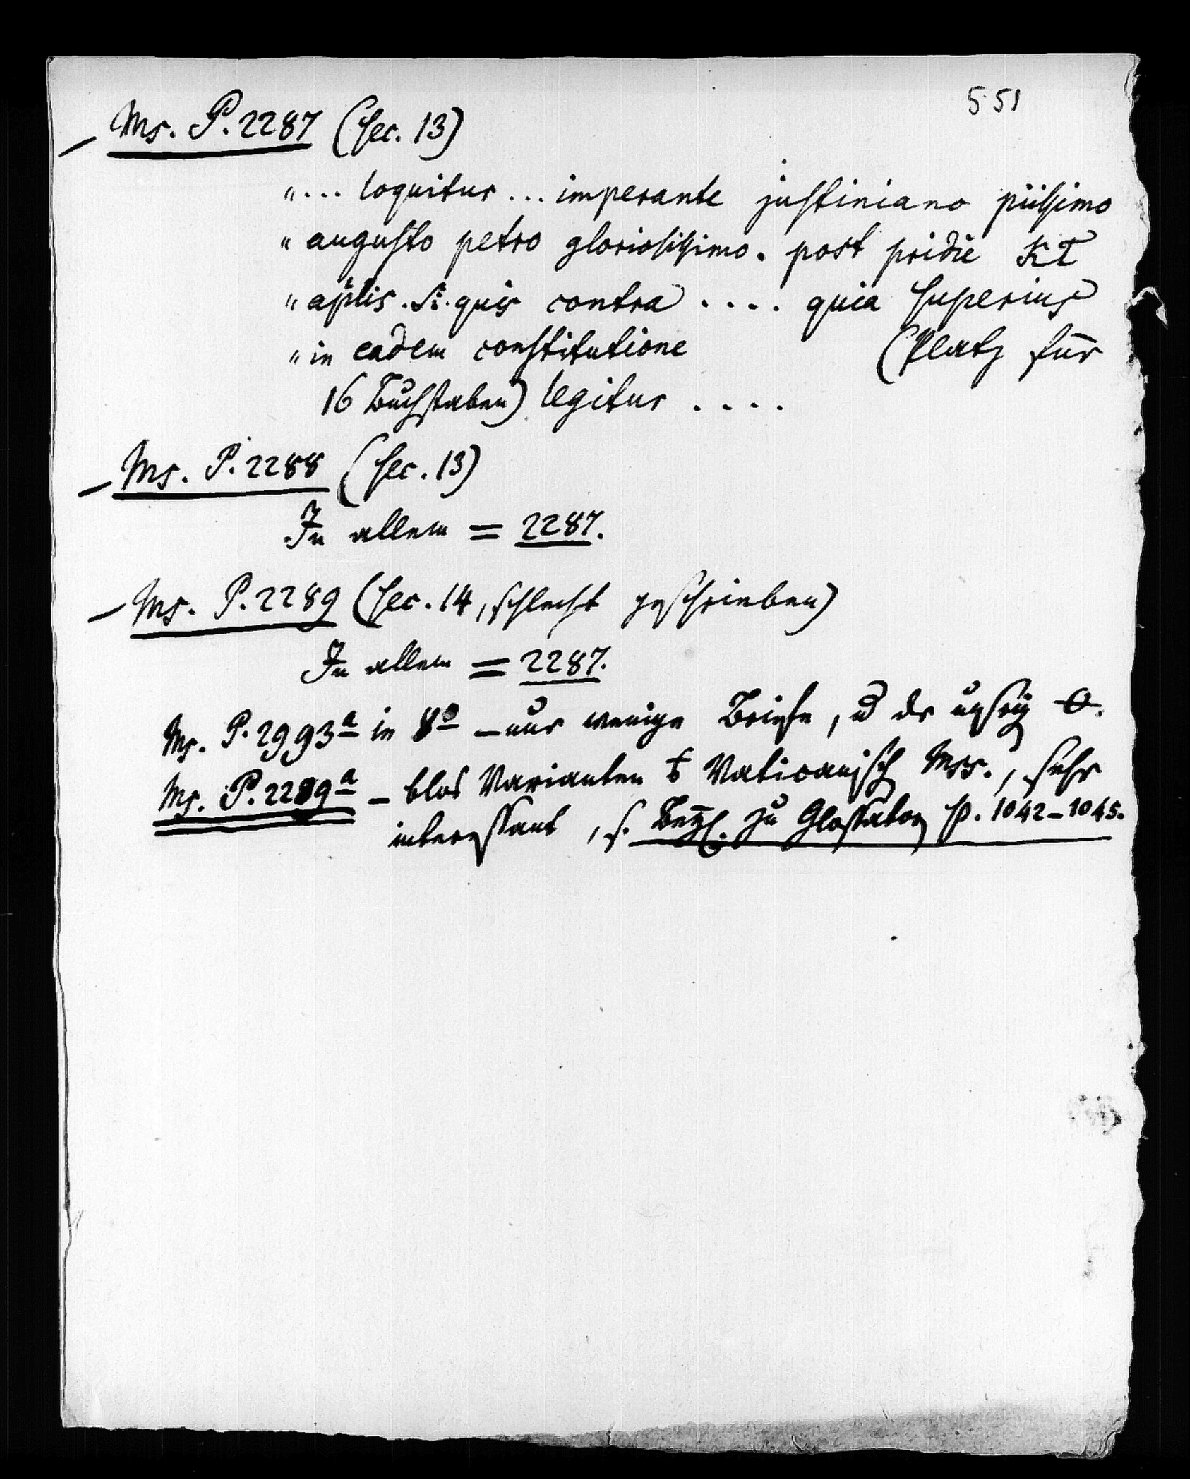 551
— Ms. P. 2287 (sec. 13)
„ ... loquitur ... imperante justiniano piissimo
„ augusto petro gloriosissimo. post pridie
„ aplis. Si quis contra .... quia superius
„ in eadem constitutione (Platz für
16 Buchstaben) legitur ....
— Ms. P. 2288 (sec. 13)
In allem = 2287.
— Ms. P. 2289 (sec. 14, schlecht geschrieben)
In allem = 2287.
Ms. P. 2993a in 8o — nur wenige Briefe, u der
Ms. P. 2289a — blos Varianten Vaticanisch Mss., sehr
interessant, s. zu Glossator p. 1042–1045.